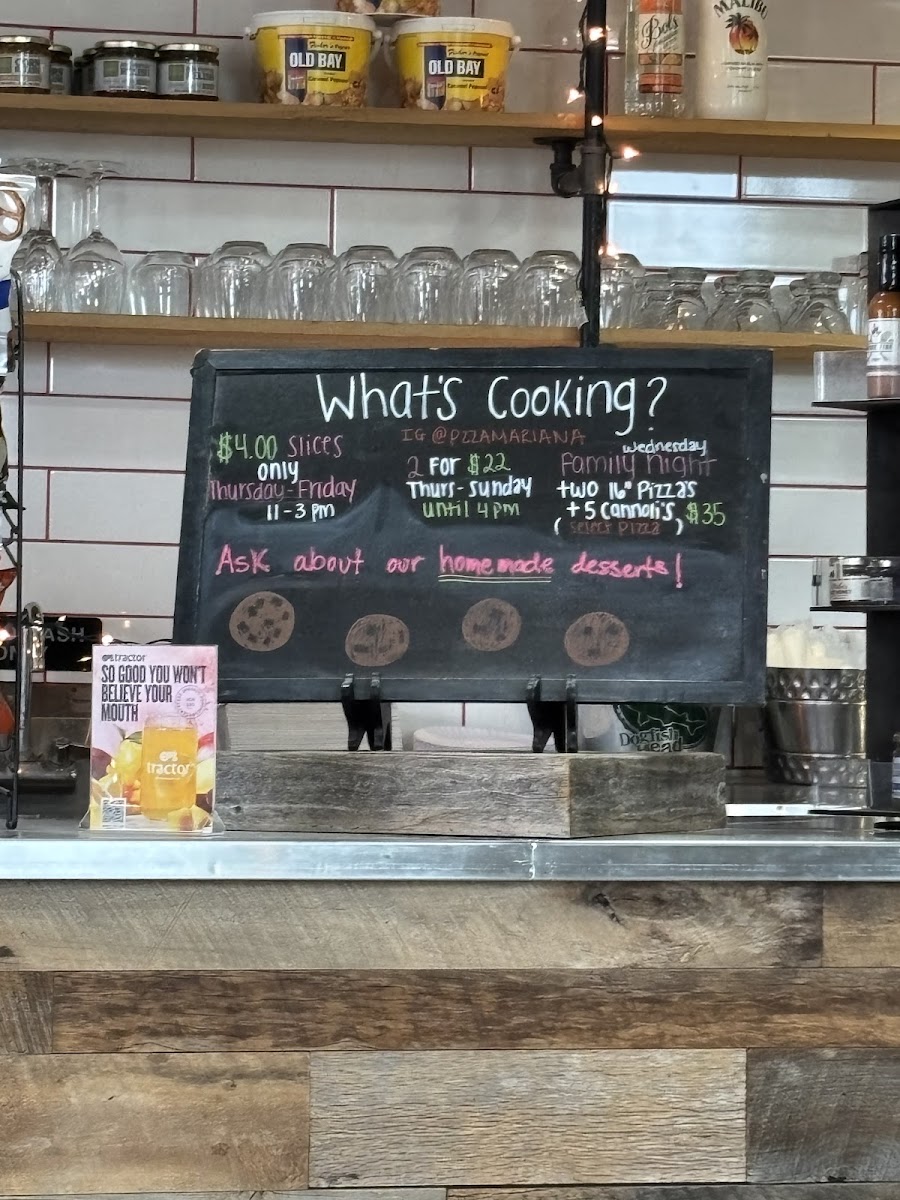 OLD BAY
Caramel Popcorn
OLD BAY
Caramel Popcorn
Bols
MALIBU
What's Cooking?
IG @PZZAMARIANA
$4.00 slices
only
Thursday-Friday
11-3 pm
2 FOR $22
Thurs-Sunday
until 4pm
wednesday
Family night
two 16" Pizza's
+5 cannoli's $35
(select pizza)
Ask about our homemade desserts!
tractor
SO GOOD YOU WON'T
BELIEVE YOUR
MOUTH
tractor
Dogfish
Head